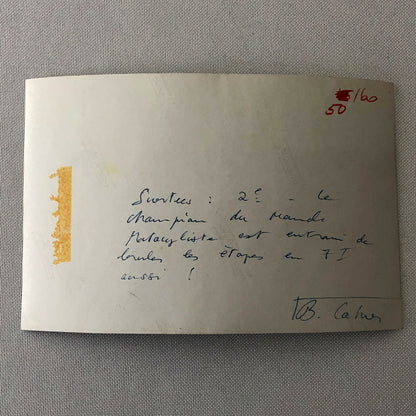 /60
50
Surtees : 2e - Le
champion du Monde
Motocycliste est entrain de
bruler les étapes en F I
aussi !
B. Cahier